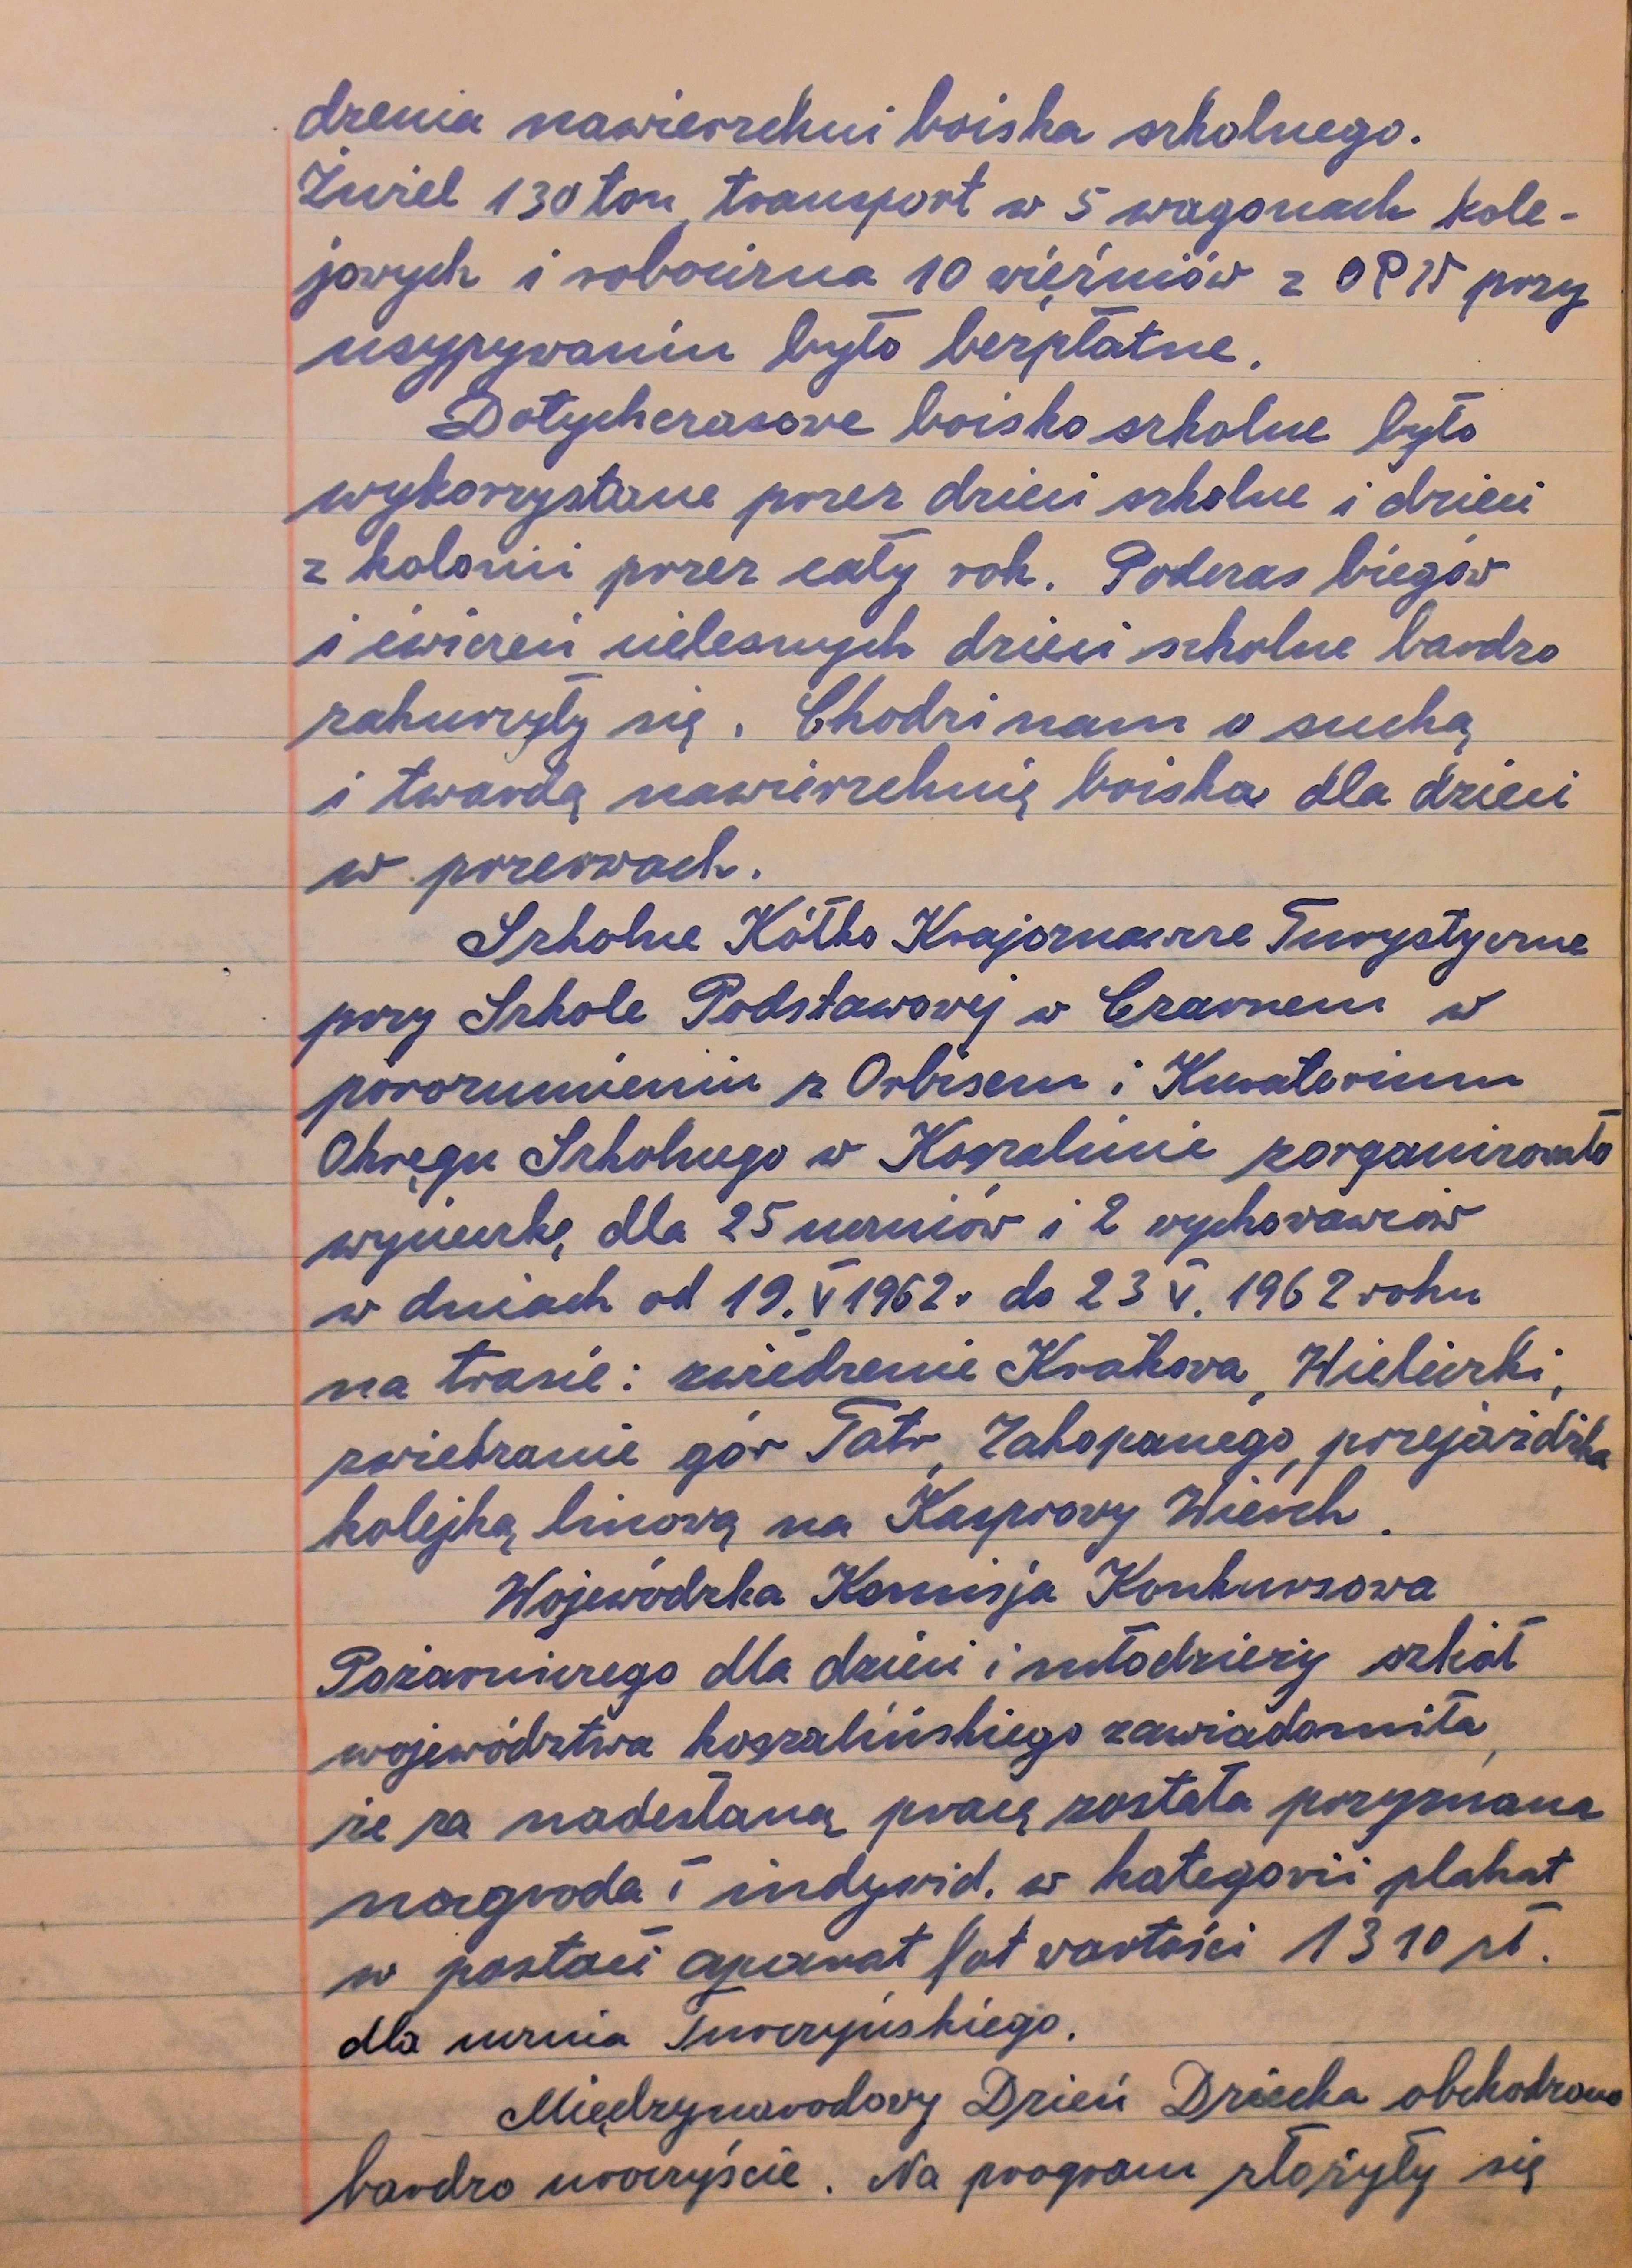 dzenia nawierzchni boiska szkolnego.
Żwirel 130 ton, transport w 5 wagonach kole-
jowych i robocizna 10 więźniów z OPW przy
usypywaniu było bezpłatne.
Dotychczasowe boisko szkolne było
wykorzystane przez dzieci szkolne i dzieci
z kolonii przez cały rok. Podczas biegów
i ćwiczeń cielesnych dzieci szkolne bardzo
zakurzyły się. Chodzi nam o suchą
i twardą nawierzchnię boiska dla dzieci
w przerwach.
Szkolne Kółko Krajoznawcze Turystyczne
przy Szkole Podstawowej w Czarnem w
porozumieniu z Orbisem i Kuratorium
Okręgu Szkolnego w Koszalinie zorganizowało
wycieczkę dla 25 uczniów i 2 wychowawców
w dniach od 19. V 1962r do 23 V. 1962 roku
na trasie: zwiedzenie Krakowa, Wieliczki,
zwiedzanie gór Tatr, Zakopanego, przejażdżka
kolejką linową na Kasprowy Wierch.
Wojewódzka Komisja Konkursowa
Pożarniczego dla dzieci i młodzieży szkół
województwa koszalińskiego zawiadomiła,
że za nadesłaną pracę została przyznana
nagroda I indywid. w kategorii plakat
w postaci aparat fot wartości 1310 zł.
dla ucznia Turczyńskiego.
Międzynarodowy Dzień Dziecka obchodzono
bardzo uroczyście. Na program złożyły się